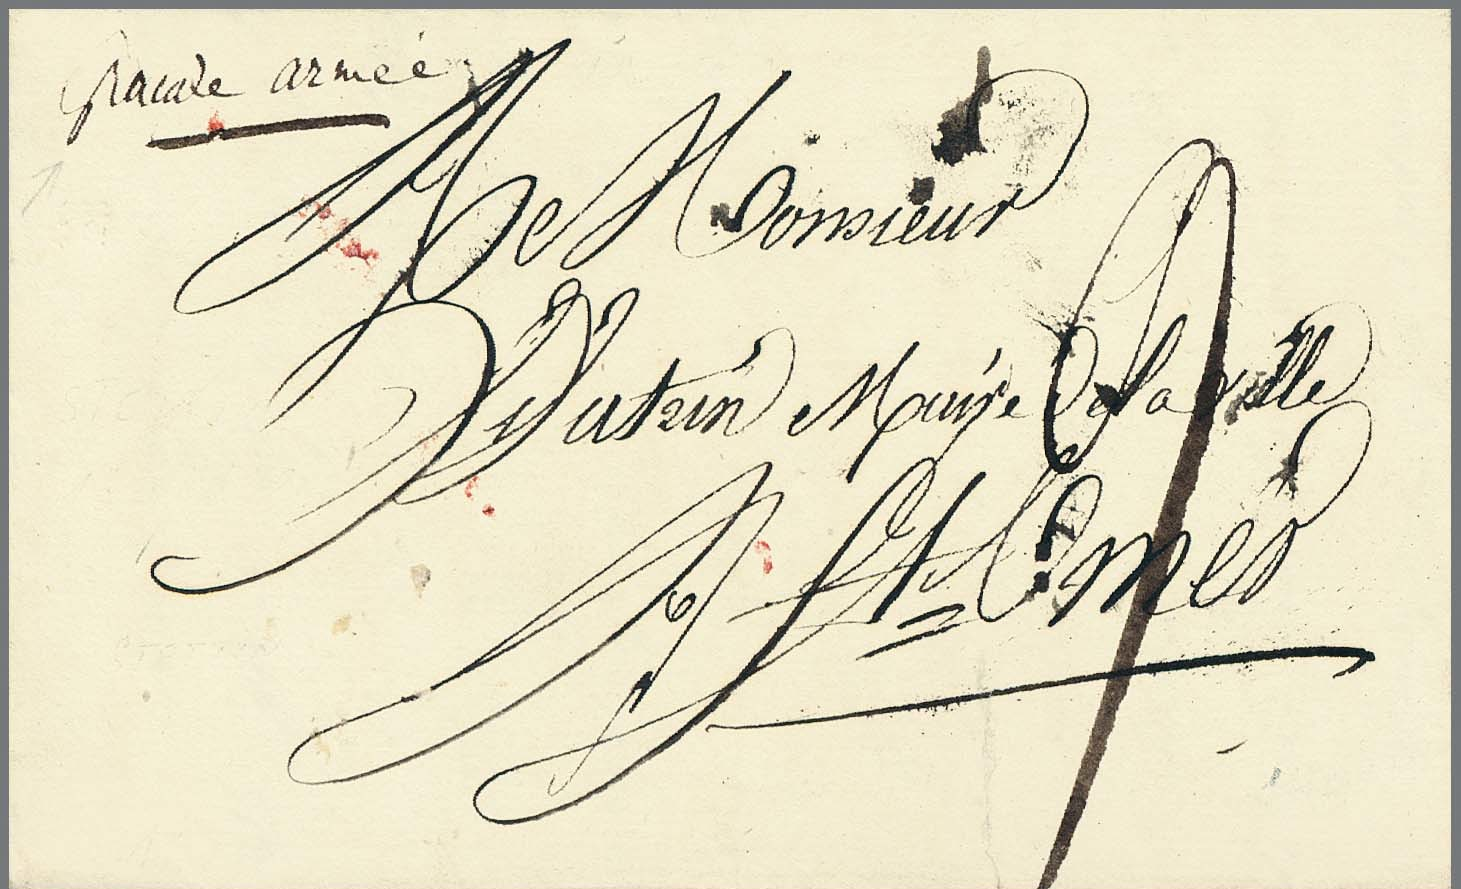 grande armée
A Monsieur
Dutrin Maire de la ville
A St Omer